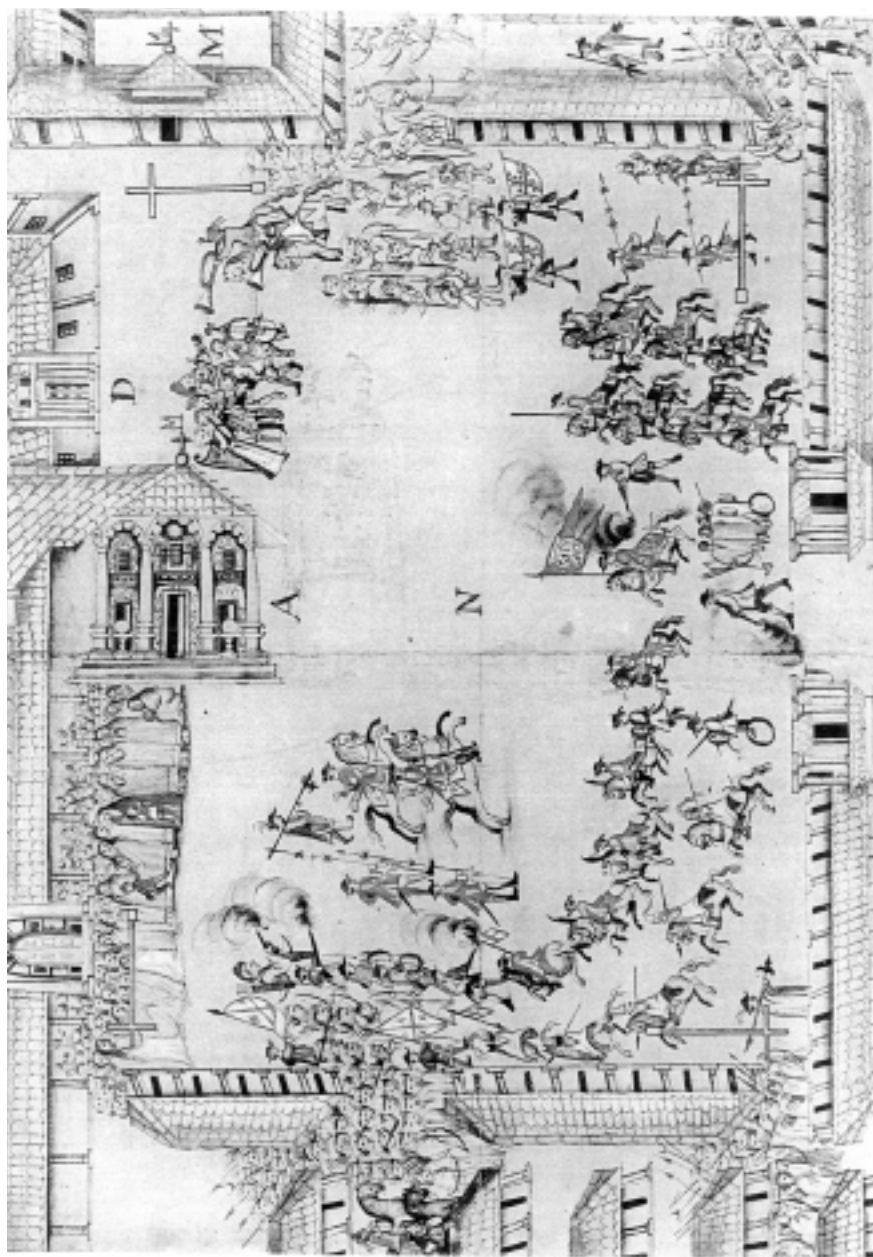 M
D
A
N